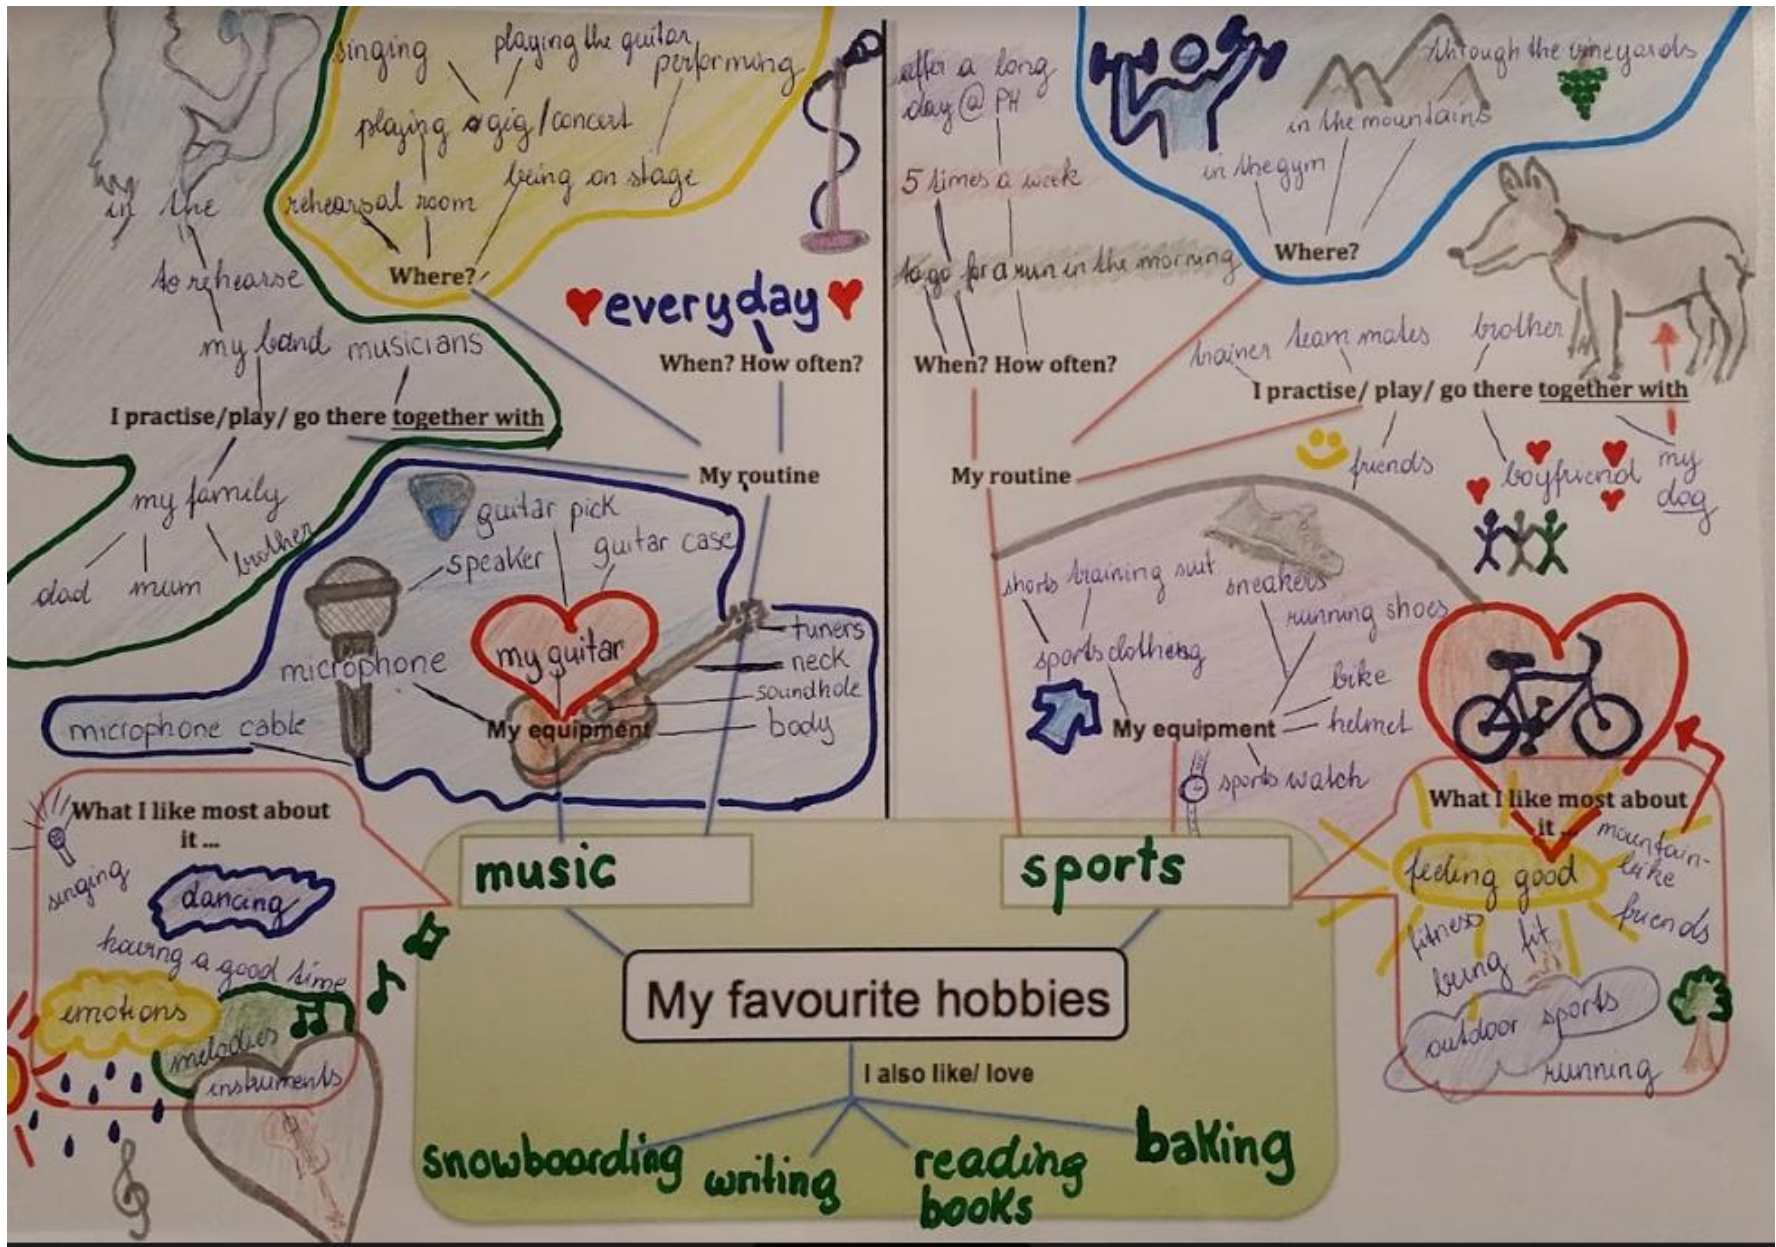 singing
playing the guitar
performing
playing a gig/concert
rehearsal room
being on stage
Where?
in the
to rehearse
my band
musicians
I practise/play/ go there together with
my family
dad
mum
brother
everyday
When? How often?
My routine
guitar pick
speaker
guitar case
my guitar
tuners
neck
soundhole
body
microphone
microphone cable
My equipment
What I like most about
it ...
singing
dancing
having a good time
emotions
melodies
instruments
music
after a long
day @ PH
5 times a week
to go for a run in the morning
When? How often?
My routine
through the vineyards
in the mountains
in the gym
Where?
trainer
team mates
brother
I practise/ play/ go there together with
friends
boyfriend
my
dog
shorts
training suit
sneakers
running shoes
sports clothing
bike
helmet
My equipment
sports watch
What I like most about
it ...
mountain-
bike
feeling good
friends
fitness
being fit
outdoor sports
running
sports
My favourite hobbies
I also like/ love
snowboarding
writing
reading
books
baking